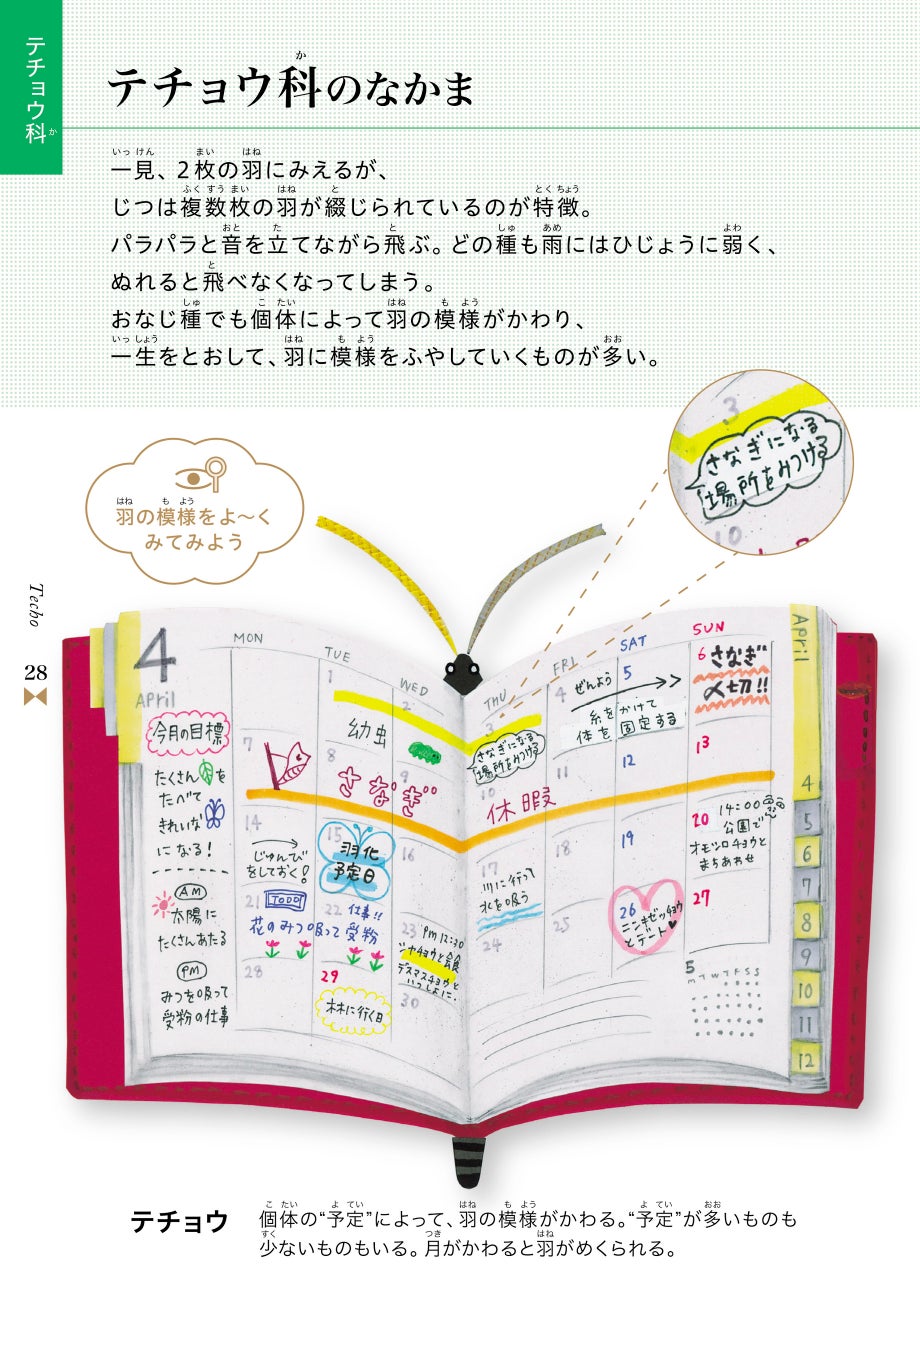 テチョウ科
か
か
テチョウ科のなかま
いっけん まい はね
一見、2枚の羽にみえるが、
ふくすうまい はね と とくちょう
じつは複数枚の羽が綴じられているのが特徴。
おと た と しゅ あめ よわ
パラパラと音を立てながら飛ぶ。どの種も雨にはひじょうに弱く、
と
ぬれると飛べなくなってしまう。
しゅ こたい はね もよう
おなじ種でも個体によって羽の模様がかわり、
いっしょう はね もよう おお
一生をとおして、羽に模様をふやしていくものが多い。
3
さなぎになる
場所をみつける
10
はね もよう
羽の模様をよ～く
みてみよう
Techo
28
4
April
今月の目標
たくさんを
たべて
きれいな
になる!
AM
太陽に
たくさんあたる
PM
みつを吸って
受粉の仕事
MON
TUE
WED
THU
FRI
SAT
SUN
1
2
3
4 ぜんよう
5
6 さなぎ
〆切!!
幼虫
さなぎになる
場所をみつける
糸をかけて
体を固定する
7
8
9
10
11
12
13
さなぎ
休暇
14
じゅんび
をしておく!
15
羽化
予定日
16
17
川に行って
水を吸う
18
19
20 14:00
公園で
オモシロチョウと
まちあわせ
21 TODO
22 仕事!!
花のみつ吸って受粉
23 PM12:30
ジャチョウと会食
デスマスチョウと
いっしょに.
24
25
26
ニンキゼッチョウ
とデート
27
28
29
林に行く日
30
5
M T W T F S S
April
4
5
6
7
8
9
10
11
12
テチョウ
こたい よてい はね もよう よてい おお
個体の“予定”によって、羽の模様がかわる。“予定”が多いものも
すく つき はね
少ないものもいる。月がかわると羽がめくられる。